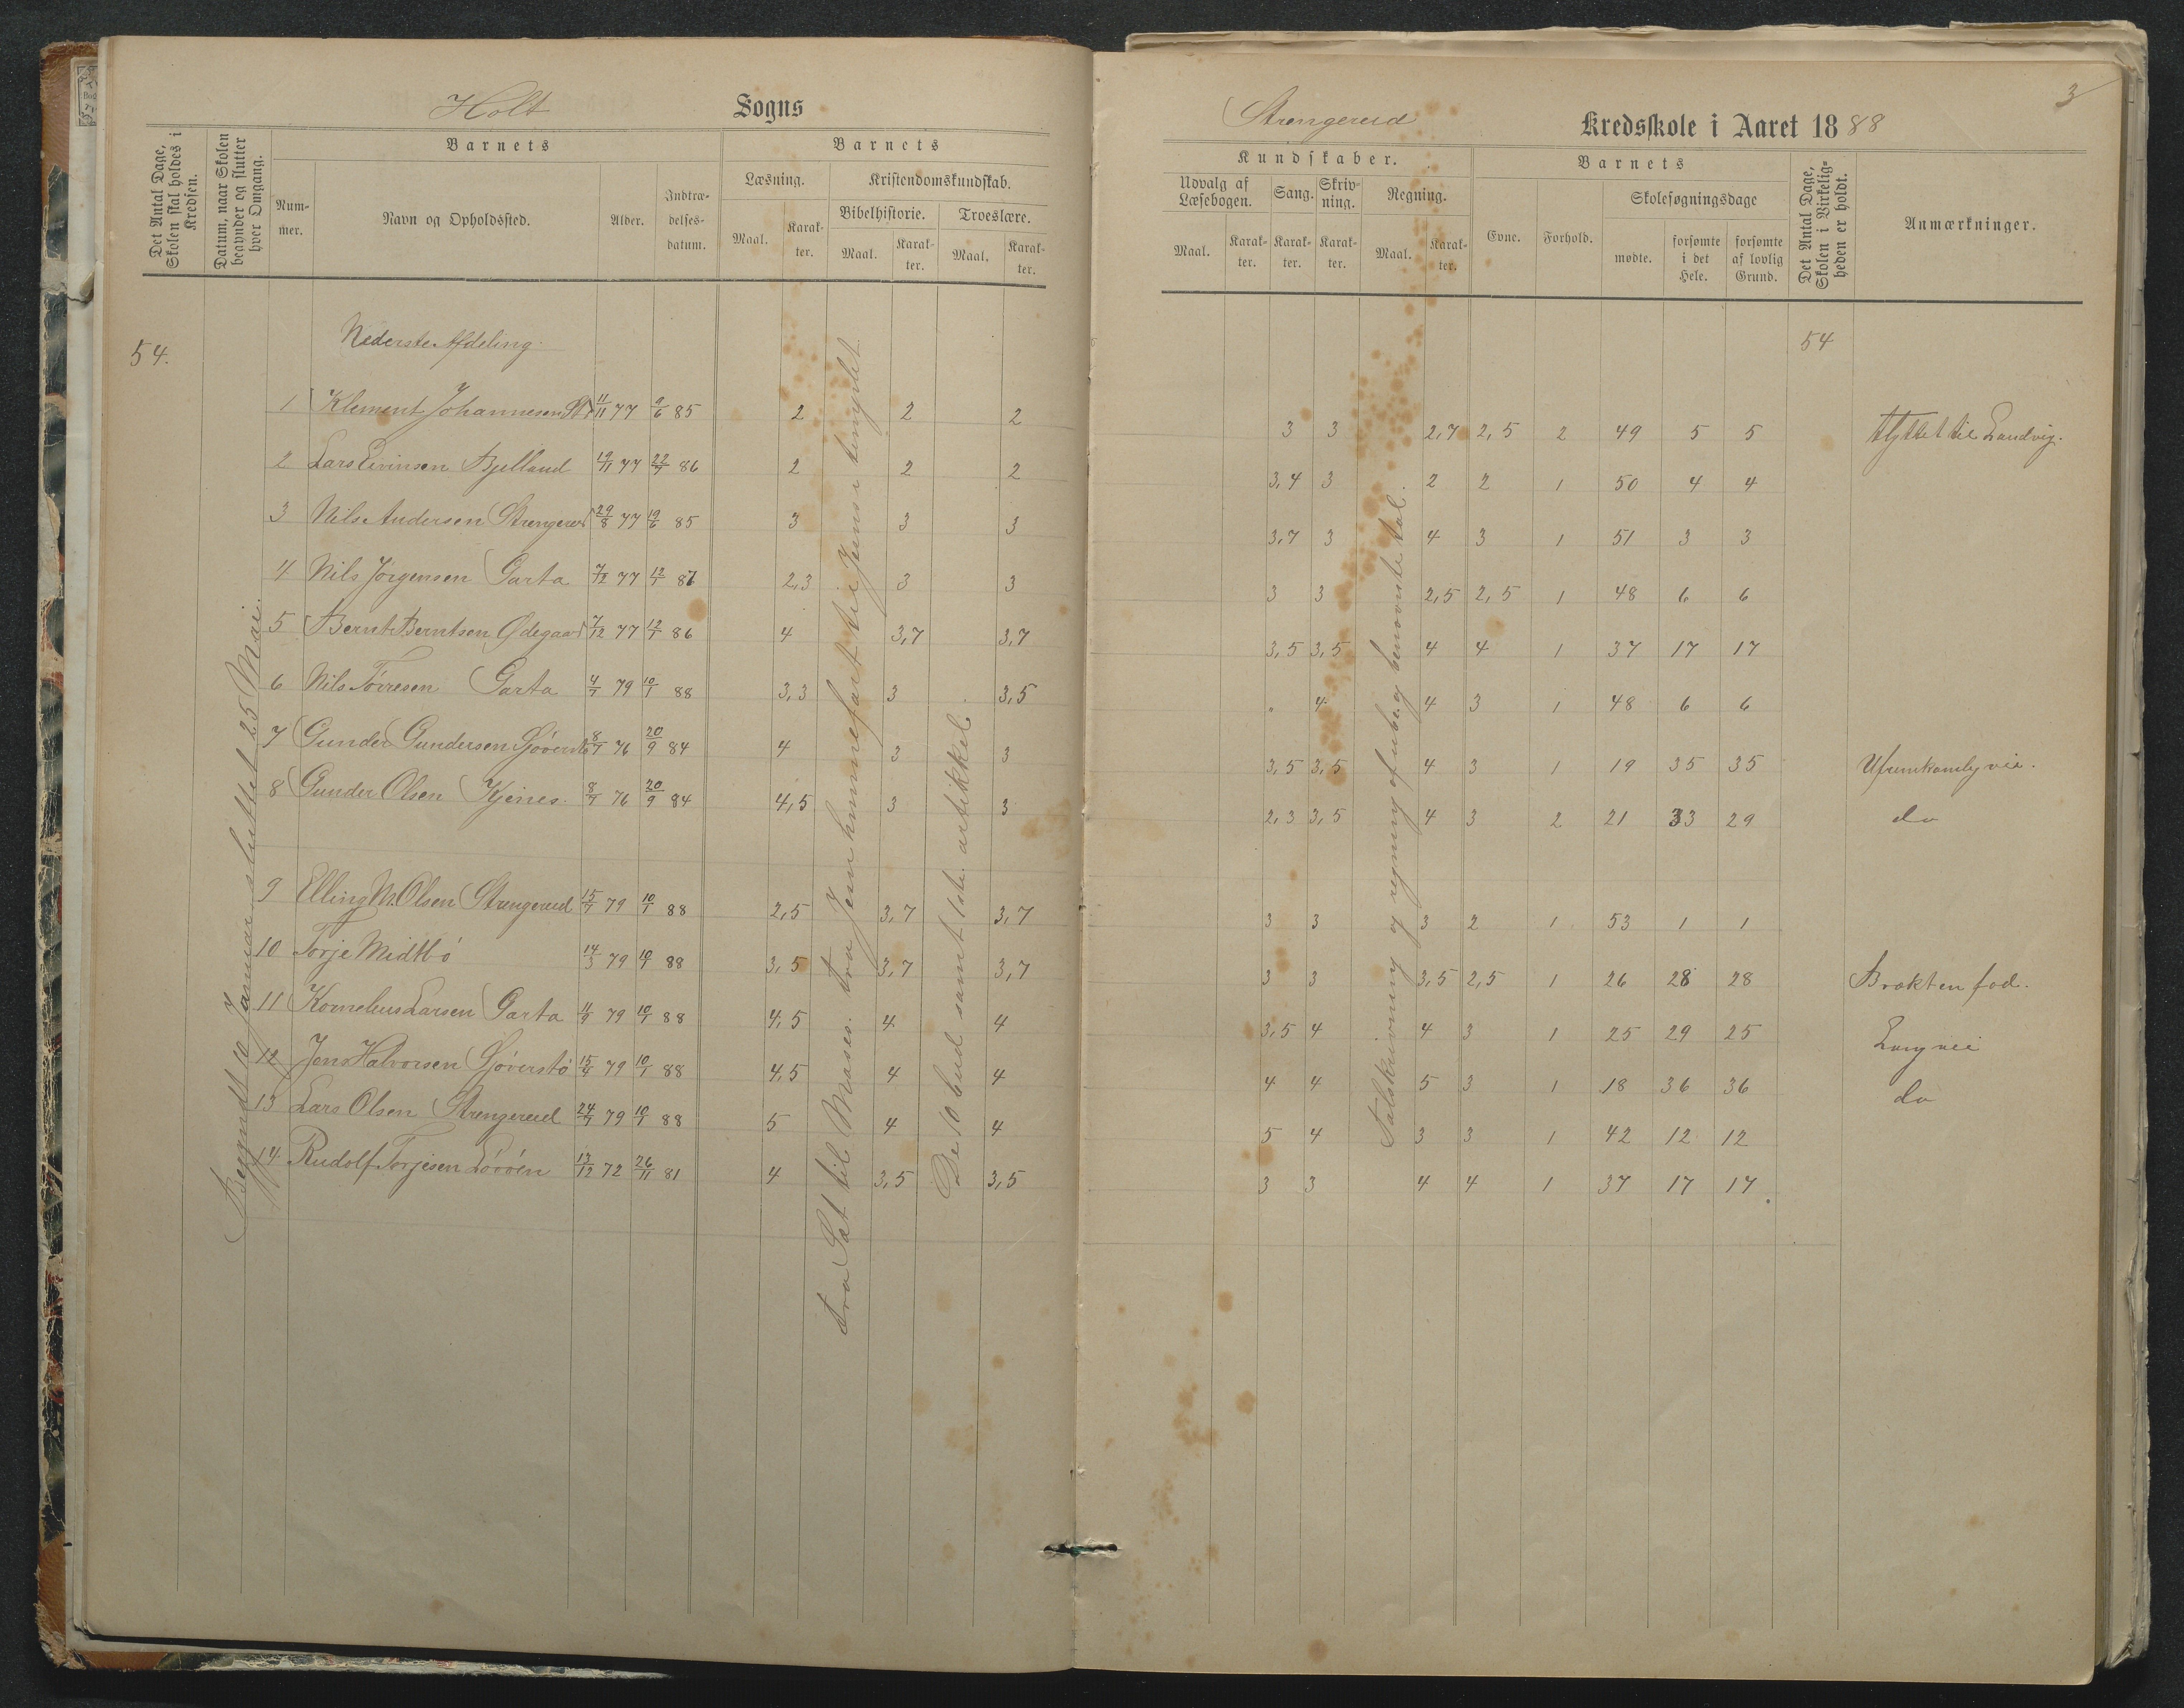 Holt Sogns
Det Antal Dage, Skolen skal holdes i Kredsen.
Datum, naar Skolen beavnder og slutter hver Omgang.
Barnets
Nummer.
Navn og Opholdssted.
Alder.
Indtrædelses-datum.
Barnets
Læsning.
Maal.
Karakter.
Kristendomskundskab.
Bibelhistorie.
Maal.
Karakter.
Troeslære.
Maal.
Karakter.
54.
Nederste Afdeling
1 Klement Johannesen St 11/11 77 9/6 85 2 2 2
2 Lars Eivinsen Bjelland 19/11 77 22/7 86 2 2 2
3 Nils Andersen Strengereid 29/8 77 19/6 85 3 3 3
4 Nils Jørgensen Garta 7/12 77 12/1 87 2,3 3 3
5 Bernt Berntsen Ødegaard 7/12 77 12/1 86 4 3,7 3,7
6 Nils Tørresen Garta 4/7 79 10/1 88 3,3 3 3,5
7 Gunder Gundersen Gjøverstø 8/7 76 20/9 84 4 3 3
8 Gunder Olsen Kjenes. 8/7 76 20/9 84 4,5 3 3
9 Elling M. Olsen Strengereid 15/7 79 10/1 88 2,5 3,7 3,7
10 Torje Midtbø 14/3 79 10/1 88 3,5 3,7 3,7
11 Kornelius Larsen Garta 11/9 79 10/1 88 4,5 4 4
12 Jens Halvorsen Gjøverstø 15/4 79 10/1 88 4,5 4 4
13 Lars Olsen Strengereid 24/7 79 10/1 88 5 4 4
14 Rudolf Torjesen Løvøen 13/12 72 26/11 81 4 3,5 3,5
Begyndt 10 Januar sluttet 25 Mai.
Fra Sat til Moses. Fra Jesu himmelfart til Jens i tempelet
De 10 bud samt 1ste artikkel
3
Strengereid Kredsskole i Aaret 1888
Kundskaber.
Udvalg af Læsebogen.
Maal.
Karakter.
Sang.
Karakter.
Skrivning.
Karakter.
Regning.
Maal.
Karakter.
Barnets
Evne.
Forhold.
Skolesøgningsdage
mødte.
forsømte i det Hele.
forsømte af lovlig Grund.
Det Antal Dage, Skolen i Virkeligheden er holdt.
Anmærkninger.
54
3 3 2,7 2,5 2 49 5 5 flyttet til Landvig.
3,4 3 2 2 1 50 4 4
3,7 3 4 3 1 51 3 3
3 3 2,5 2,5 1 48 6 6
3,5 3,5 4 4 1 37 17 17
" 4 4 3 1 48 6 6
3,5 3,5 4 3 1 19 35 35 Ufremkomelig vei.
2,3 3,5 4 3 2 21 33 29 do
3 3 3 2 1 53 1 1
3 3 3,5 2,5 1 26 28 28 Brækt en fod.
3,5 4 4 3 1 25 29 25 Lang vei
4 4 5 3 1 18 36 36 do
5 4 3 3 1 42 12 12
3 3 4 4 1 37 17 17.
Talskrivning og regning af ube. og benævnte tal.